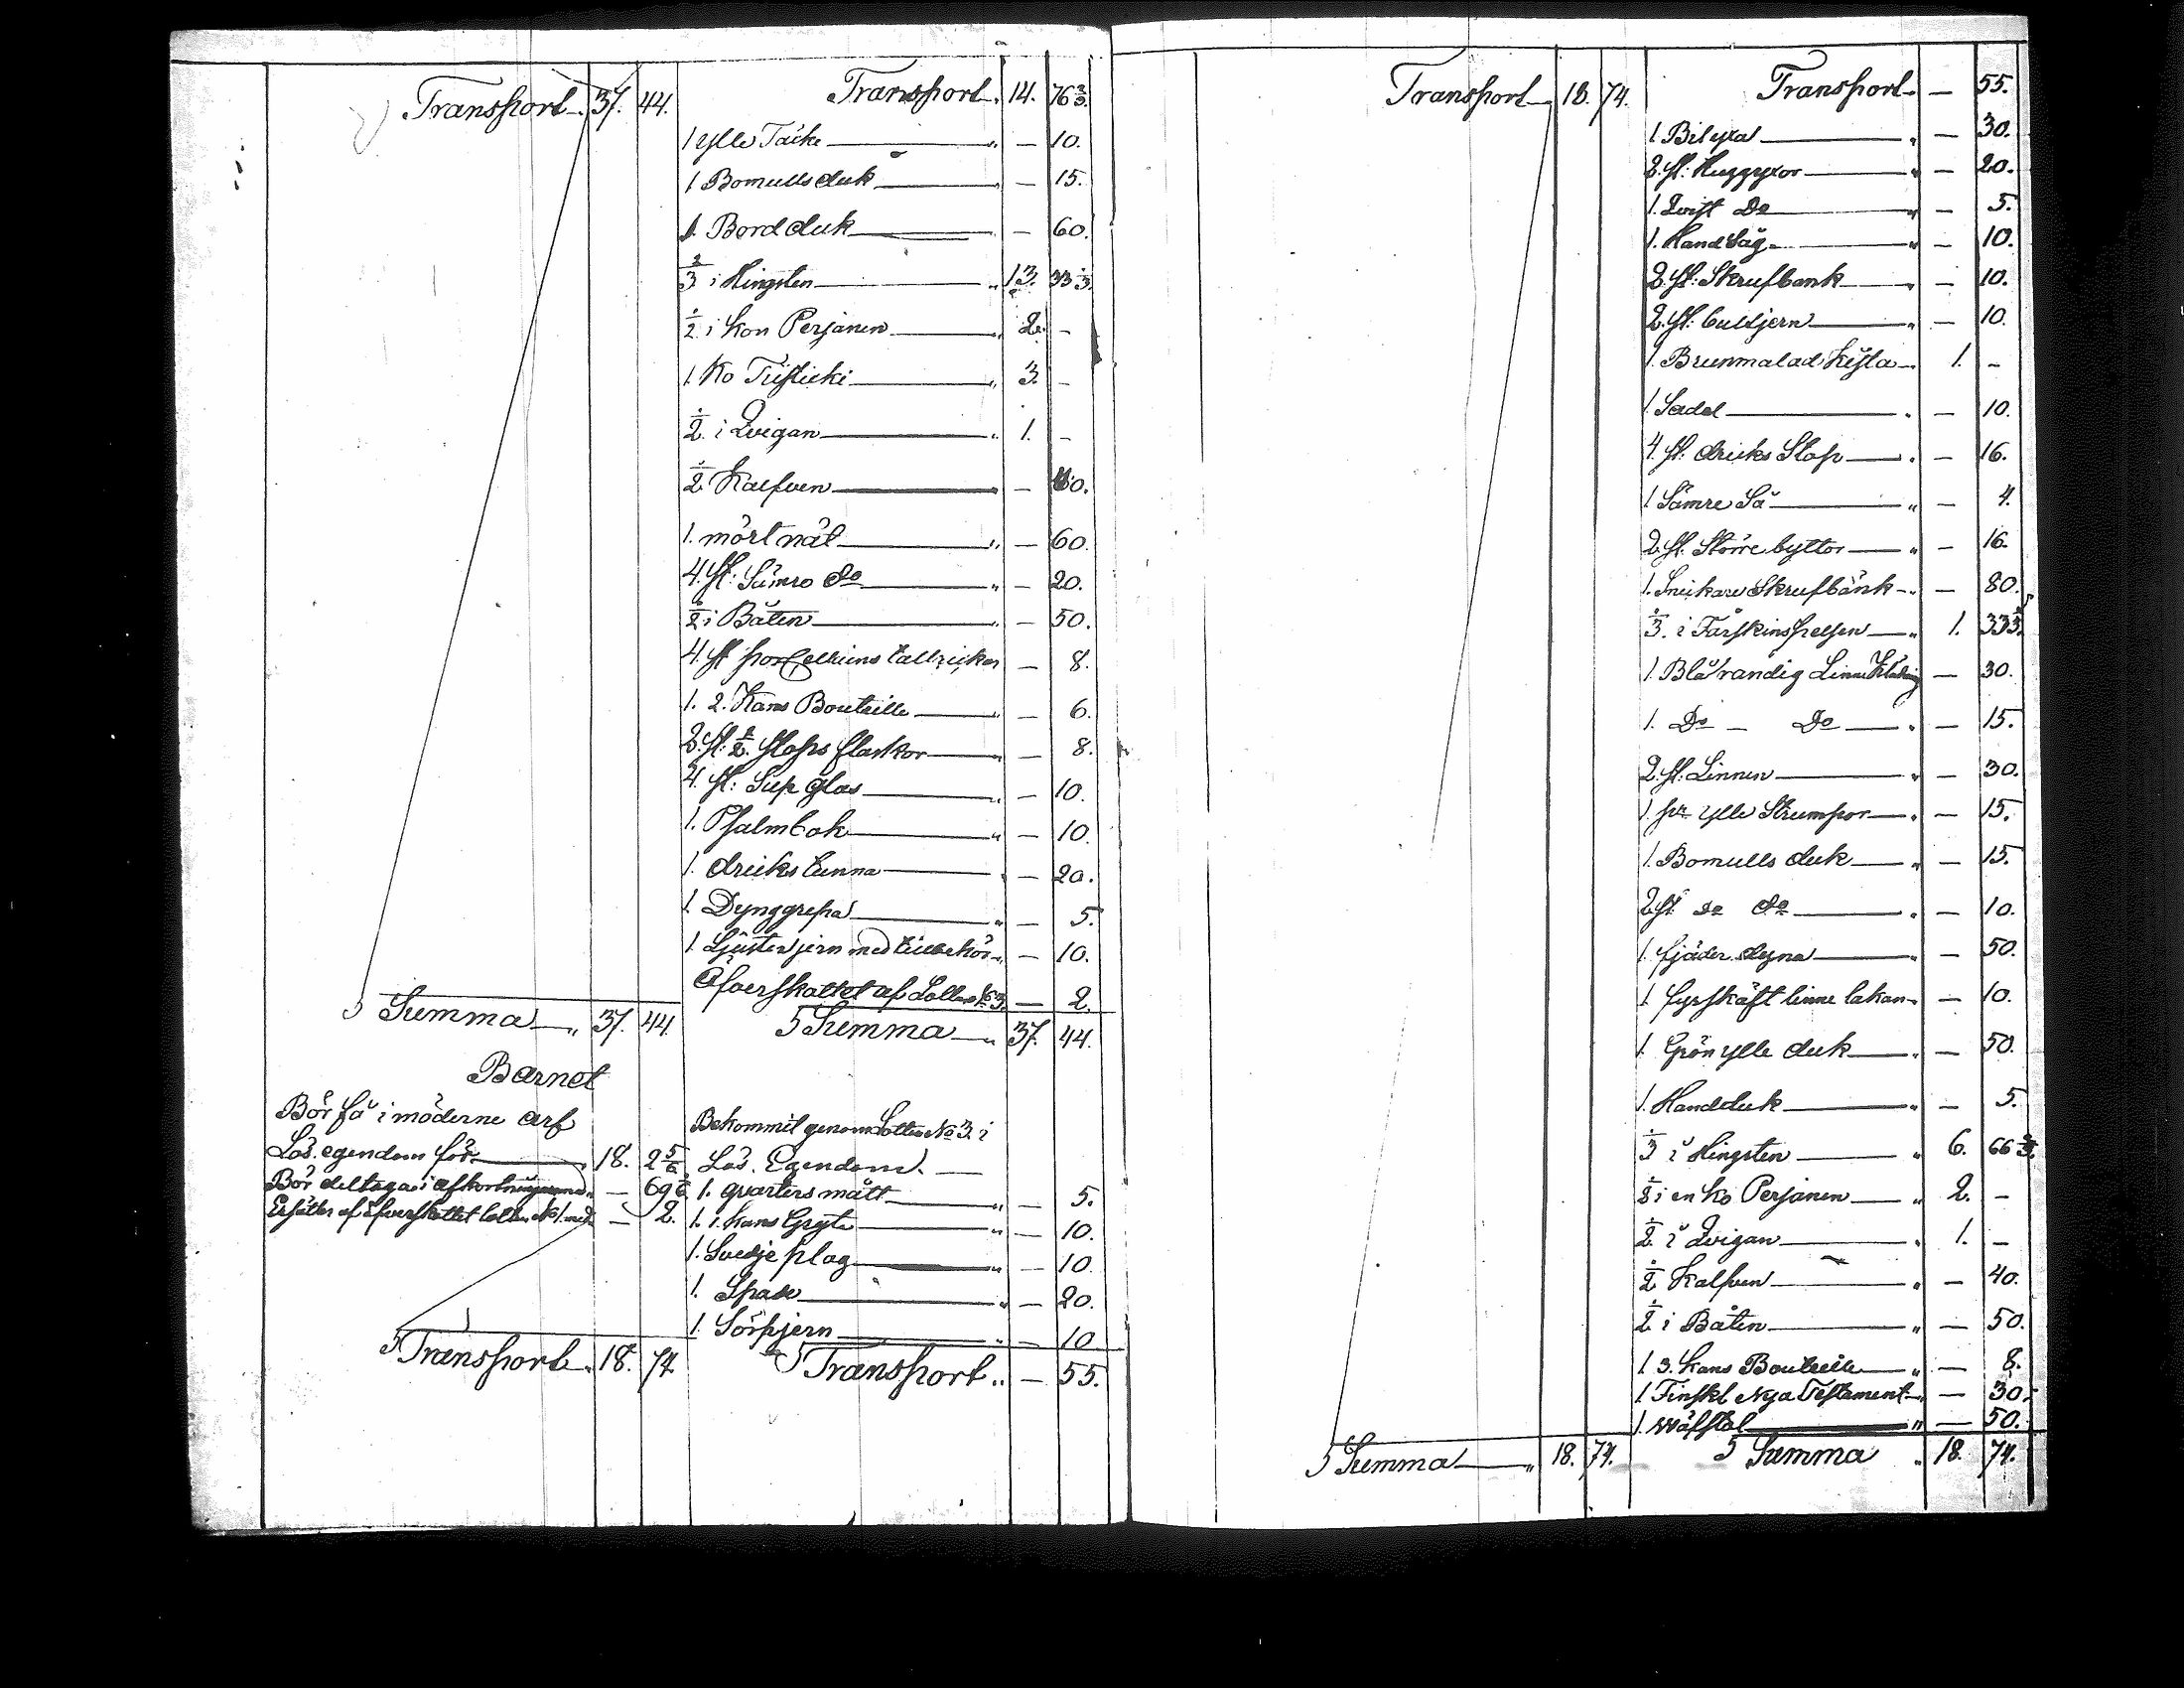 Transport 37. 44.
Transport 14. 76 2/3.
1 ylle Täcke " — 10.
1 Bomulls duk " — 15.
1. Bord duk " — 60.
2/3 i Hingsten " 13. 33 1/3.
1/2 i Kon Perjänen " 2. -
1. Ko Tusticki " 3. -
1/2 i Qvigan " 1. -
1/2 Kalfven " — 40.
1. mört nät " — 60.
4. st: Sämre do " — 20.
1/2 i Båten " — 50.
4. st porcellains tallrickar — 8.
1. 2. Kans Bouteille " — 6.
2. st: 1/2 stops flaskor " — 8.
4. st: Sup glas " — 10.
1. Psalmbok " — 10.
1. dricks tunna " — 20.
1. Dynggrepa " — 5.
1. Ljusterjern med tillbehör " — 10.
Öfverskottet af Lotten No 3. — 2.
Summa " 37. 44.
Summa " 37. 44.
Barnet
Bör få i möderne arf
Lös. egendom för 18. 2 5/6
Bör deltaga i afkortningarna — 69 1/6
Ersätter af öfverskottet lotten No 1. med — 2.
Transport 18. 74.
Bekommit genom Lotten No 3. i
Lös. Egendom. —
1. qvarters mått " — 5.
1. 1. Kans Gryta " — 10.
1. Svedje plog " — 10.
1. Spade " — 20.
1. Sörpjern " — 10
Transport " — 55.
Transport 18. 74.
Transport — 55.
1. Bilyxa " — 30.
2. st: Huggyxor " — 20.
1. Qvist Do " — 5.
1. Hand Såg " — 10.
2. st: Skrufbänk " — 10.
2. st: bultjern " — 10.
1. Brunmalad Kista 1. -
1 Sadel " — 10.
4. st: dricks Stop " — 16.
1 Sämre Så " — 4.
2. st. Större byttor " — 16.
1. Snickare Skrufbänk " — 80.
1/3. i Fårskinspelsen " 1. 33 1/3.
1. Blårandig Linne Klädning — 30.
1. Do — Do " — 15.
2. st: Linnen " — 30.
1. par ylle Strumpor " — 15.
1. Bomulls duk " — 15.
2. st do do " — 10.
1. fjäder dyna " — 50.
1. fyrskäft linne lakan — 10.
1. Grön ylle duk " — 50.
1. Handduk " — 5.
1/3 i Hingsten " 6. 66 2/3.
1/2 i en ko Perjänen " 2. -
1/2 i Qvigan " 1. -
1/2 Kalfven " — 40.
1/2 i Båten " — 50.
1. 3. Kans Bouteille " — 8.
1. Finskt Nya Testament " — 30.
1. Wäfstol " — 50.
Summa " 18. 74.
Summa " 18. 74.